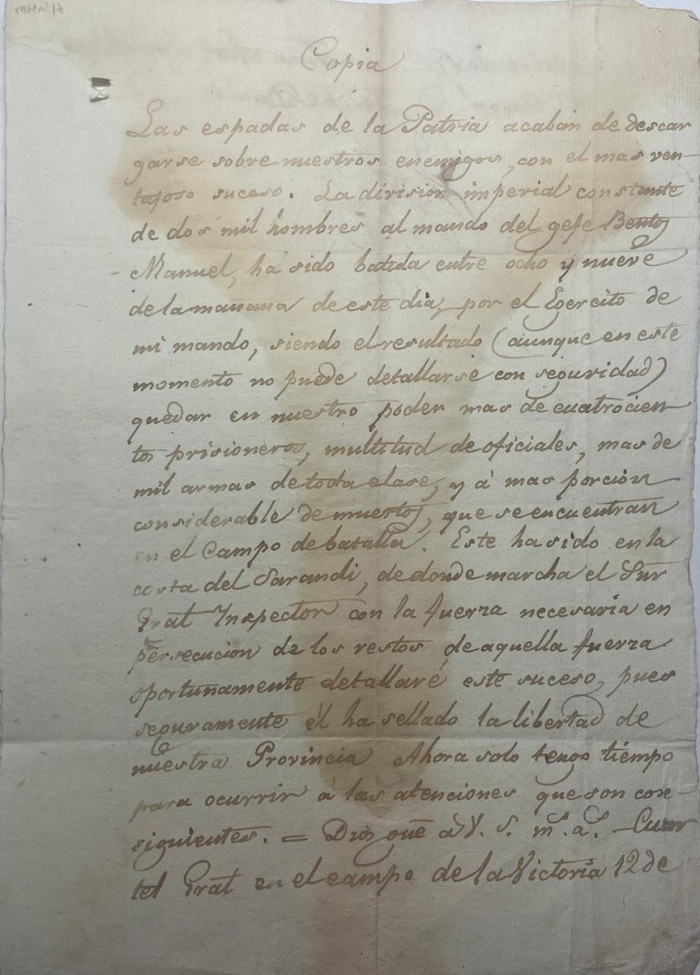 Copia
Las espadas de la Patria acaban de descar
garse sobre nuestros enemigos, con el mas ven-
tajoso suceso. La division imperial constante
de dos mil hombres al mando del gefe Bentos
Manuel, ha sido batida entre ocho y nueve
de la mañana de este dia, por el Egercito de
mi mando, siendo el resultado (aunque en este
momento no puede detallarse con seguridad)
quedar en nuestro poder mas de cuatrocien
tos prisioneros, multitud de oficiales, mas de
mil armas de toda clase, y á mas porcion
considerable de muertos, que se encuentran
en el Campo de batalla. Este ha sido en la
costa del Sarandi, de donde marcha el Sor
Gral Inspector con la fuerza necesaria en
persecucion de los restos de aquella fuerza
oportunamente detallaré este suceso, pues
seguramente él ha sellado la libertad de
nuestra Provincia. Ahora solo tengo tiempo
para ocurrir á las atenciones que son con-
siguientes. = Dios gue á V. S. ms. as. - Cuar
tel Gral en el campo de la Victoria 12 de